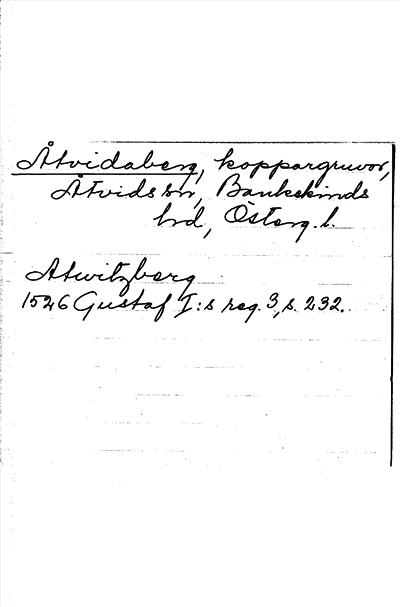 Åtvidaberg, koppargruvor,
Åtvids sn, Bankekinds
hd, Österg. l.
Atwitzberg
1526 Gustaf I:s reg. 3, s. 232.